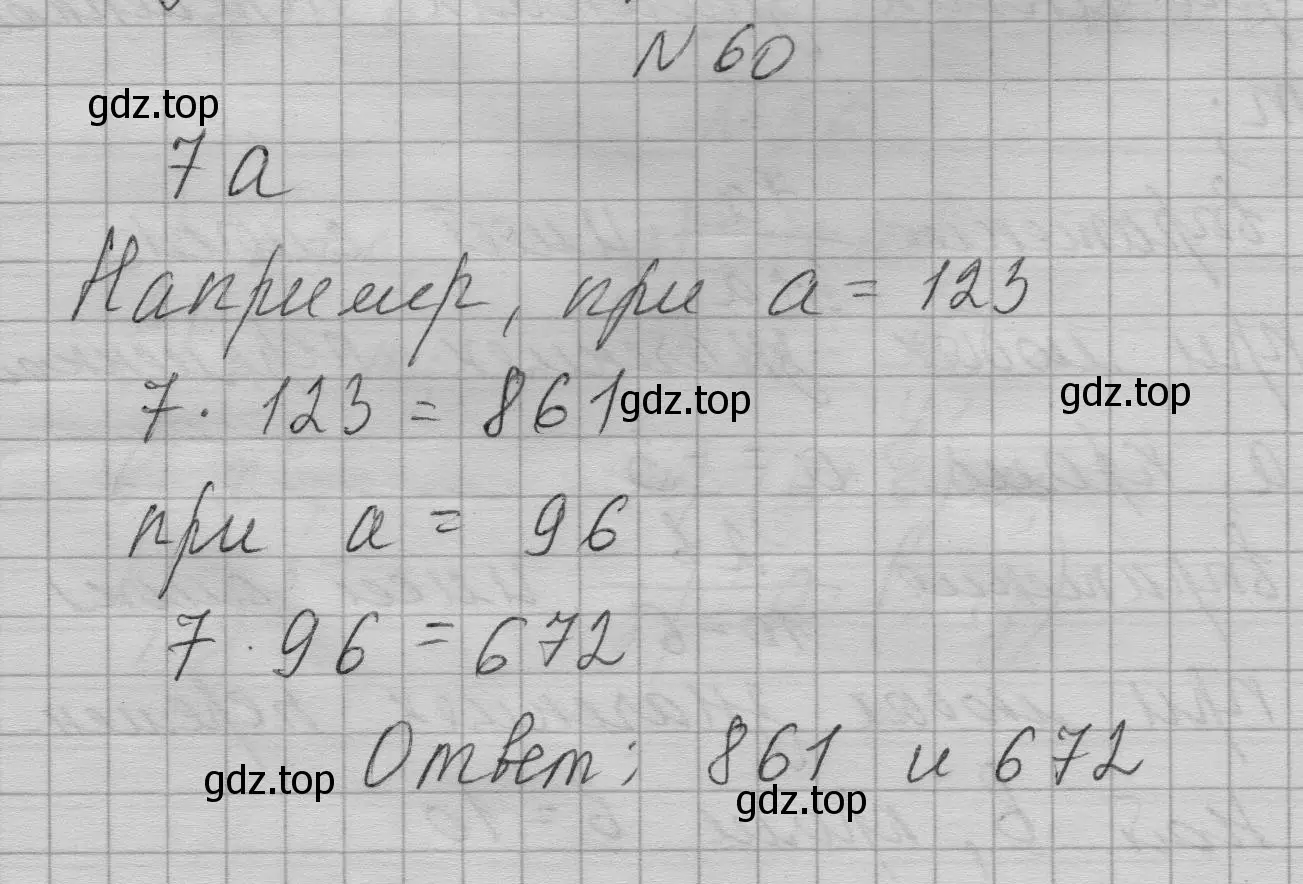 N 60
gdz.top
7a
Например, при a = 123
7 · 123 = 861
gdz.top
gdz.top
при a = 96
7 · 96 = 672
Ответ: 861 и 672
gdz.top
gdz.top